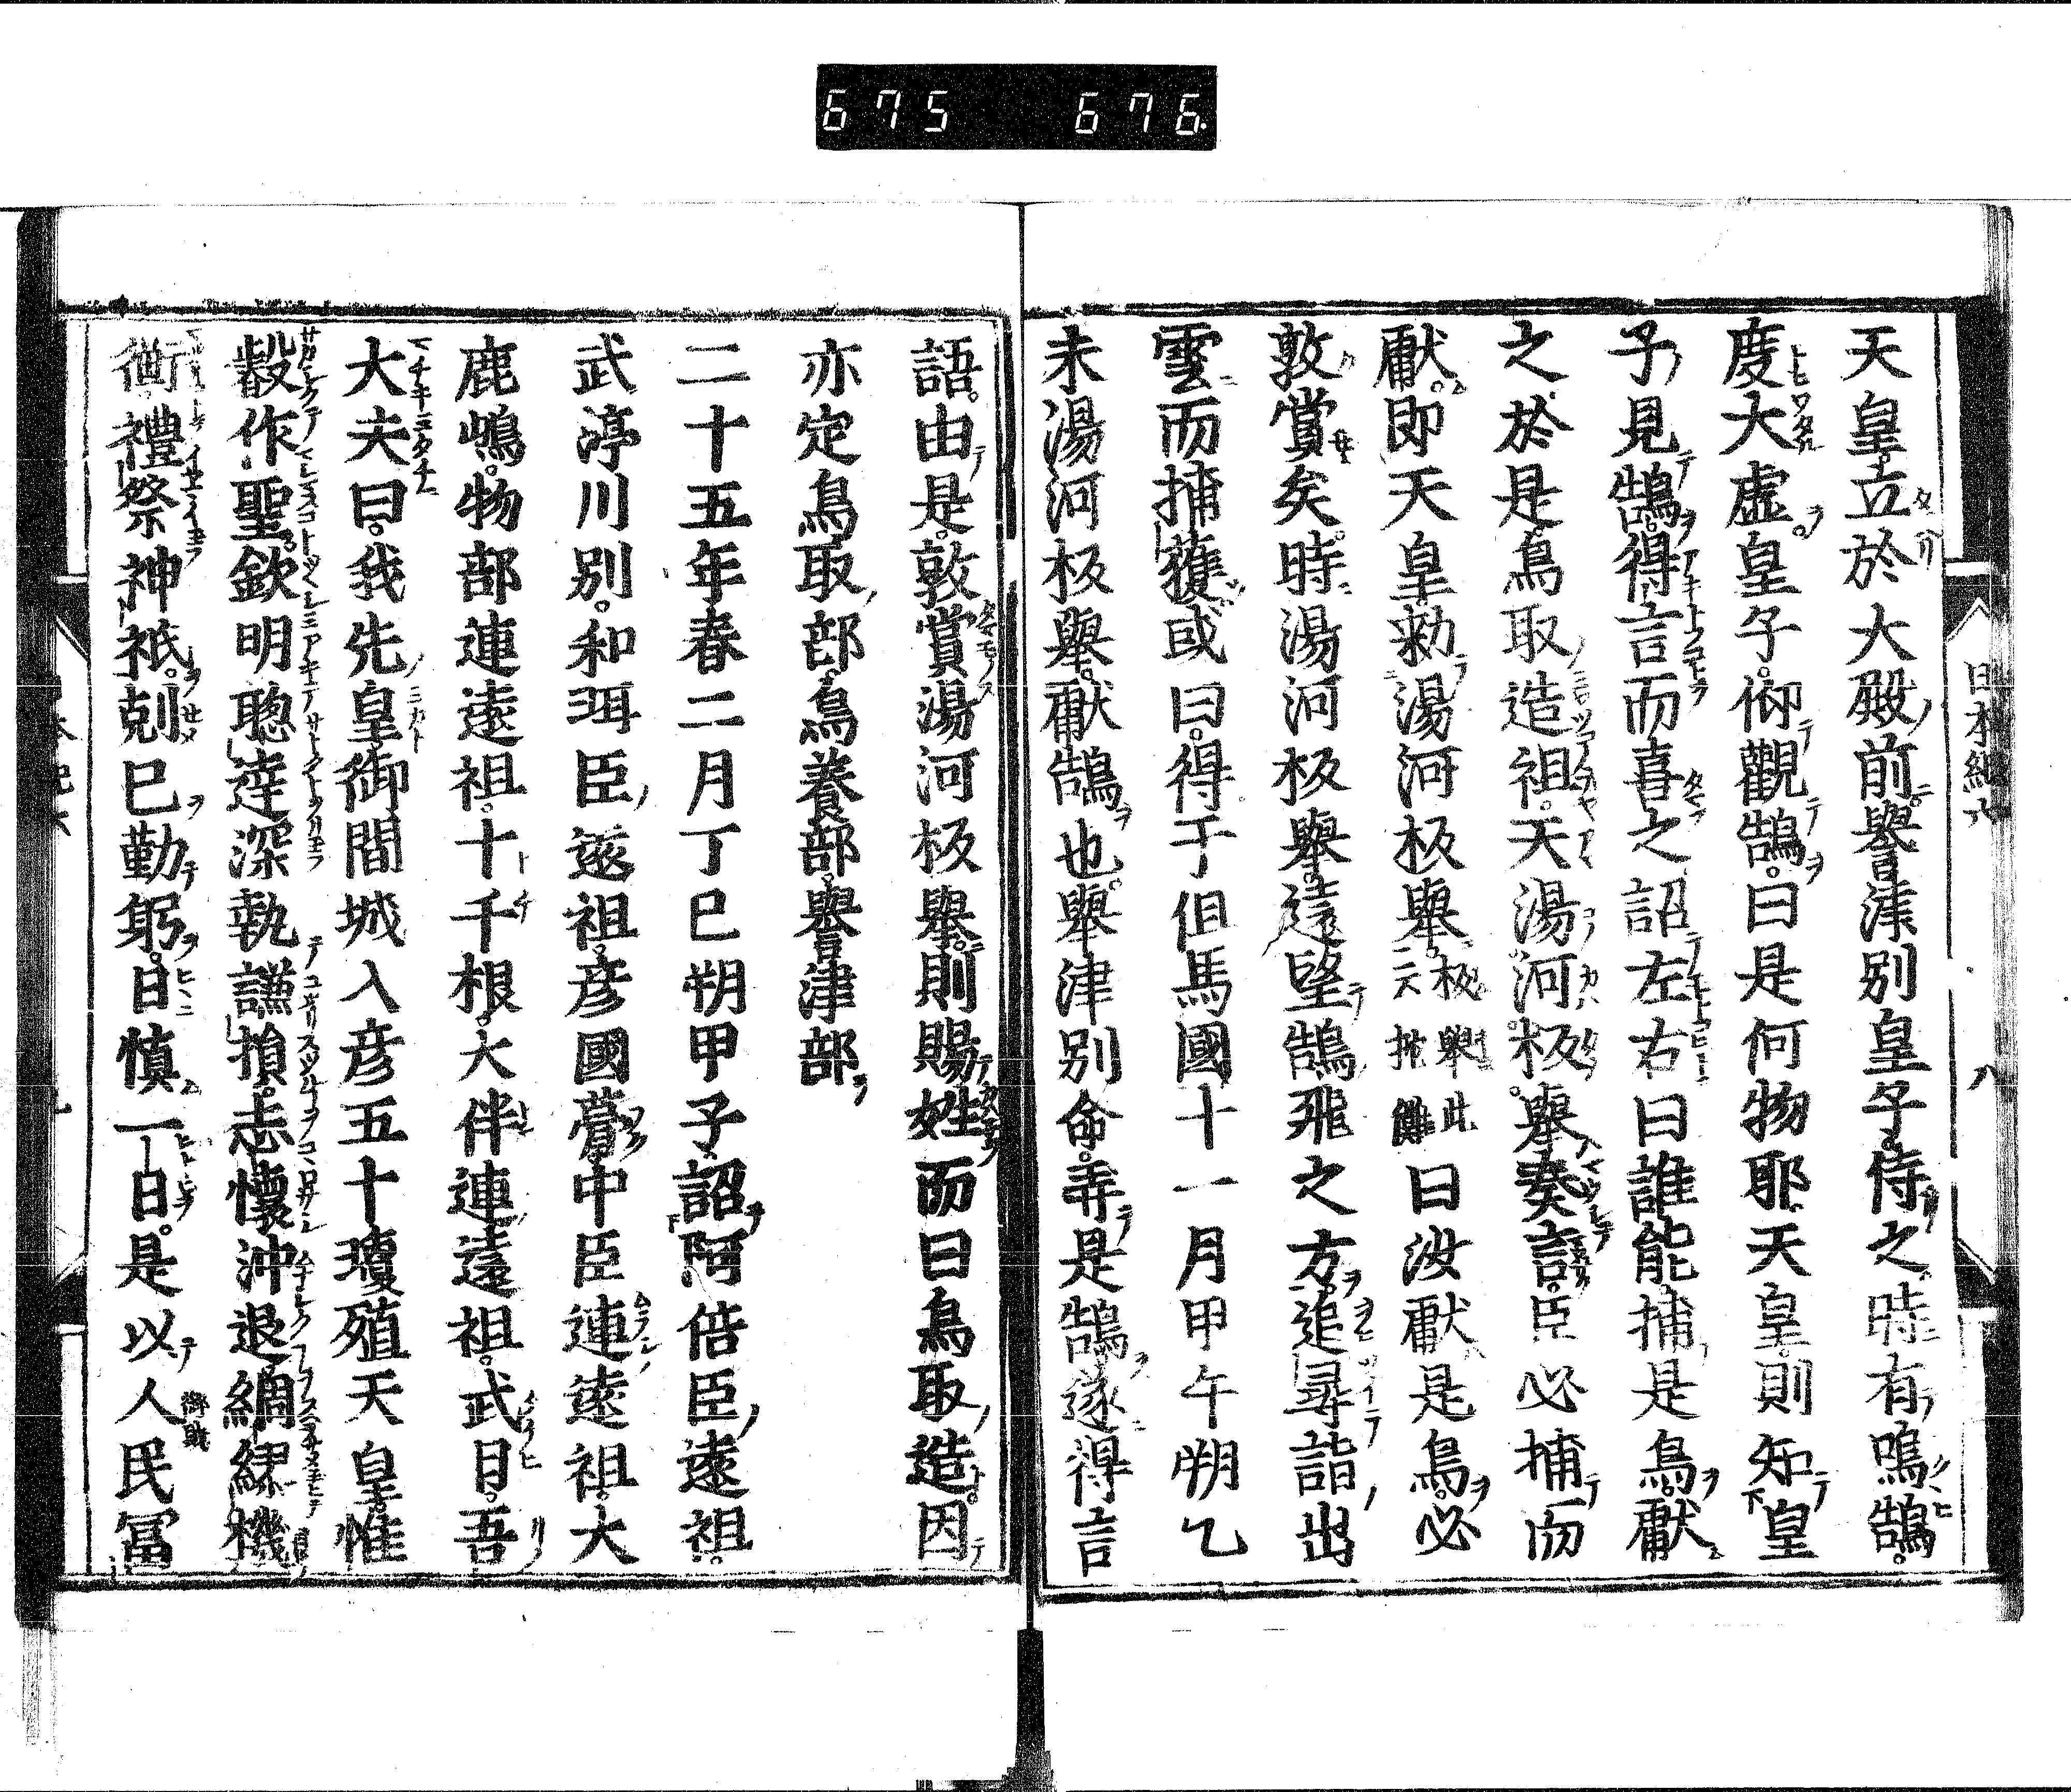 675 676
日本紀六 八
天皇立於大殿前譽津別皇子侍之時有鳴鵠
度大虛皇子仰觀鵠曰是何物耶天皇則知皇
子見鵠得言而喜之詔左右曰誰能捕是鳥獻
之於是鳥取造祖天湯河板擧奏言臣必捕而
獻即天皇勅湯河板擧板擧此云拕儺曰汝獻是鳥必
敦賞矣時湯河板擧遠望鵠飛之方追尋詣出
雲而捕獲或曰得于但馬國十一月甲午朔乙
未湯河板擧獻鵠也譽津別命弄是鵠遂得言
語由是敦賞湯河板擧則賜姓而曰鳥取造因
亦定鳥取部鳥養部譽津部
二十五年春二月丁巳朔甲子詔阿倍臣遠祖
武渟川別和珥臣遠祖彥國葺中臣連遠祖大
鹿嶋物部連遠祖十千根大伴連遠祖武日吾
大夫曰我先皇御間城入彥五十瓊殖天皇惟
叡作聖欽明聰達深執謙損志懷沖退綢繆機
衡禮祭神祇剋己勤躬日愼一日是以人民富